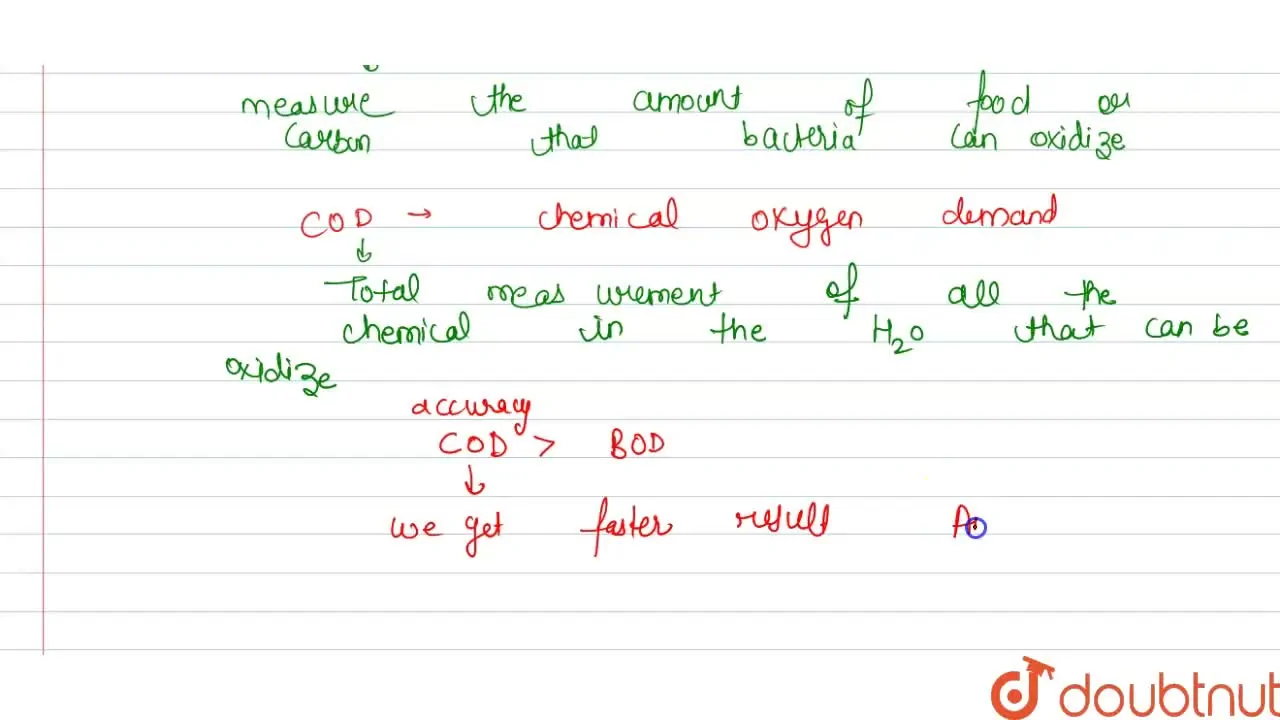 measure the amount of food or
carbon that bacteria can oxidize
COD → chemical oxygen demand
↓
Total measurement of all the
chemical in the H₂O that can be
oxidize
accuracy
COD > BOD
↓
we get faster result
doubtnut